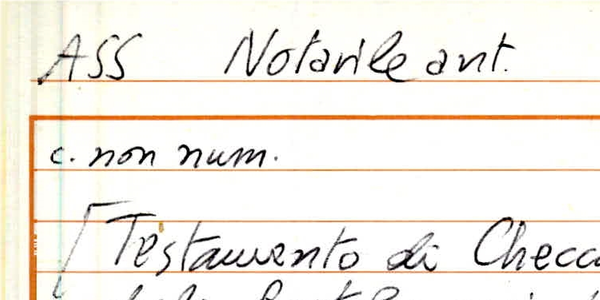 ASS Notarile ant.
c. non num.
[Testamento di Checc